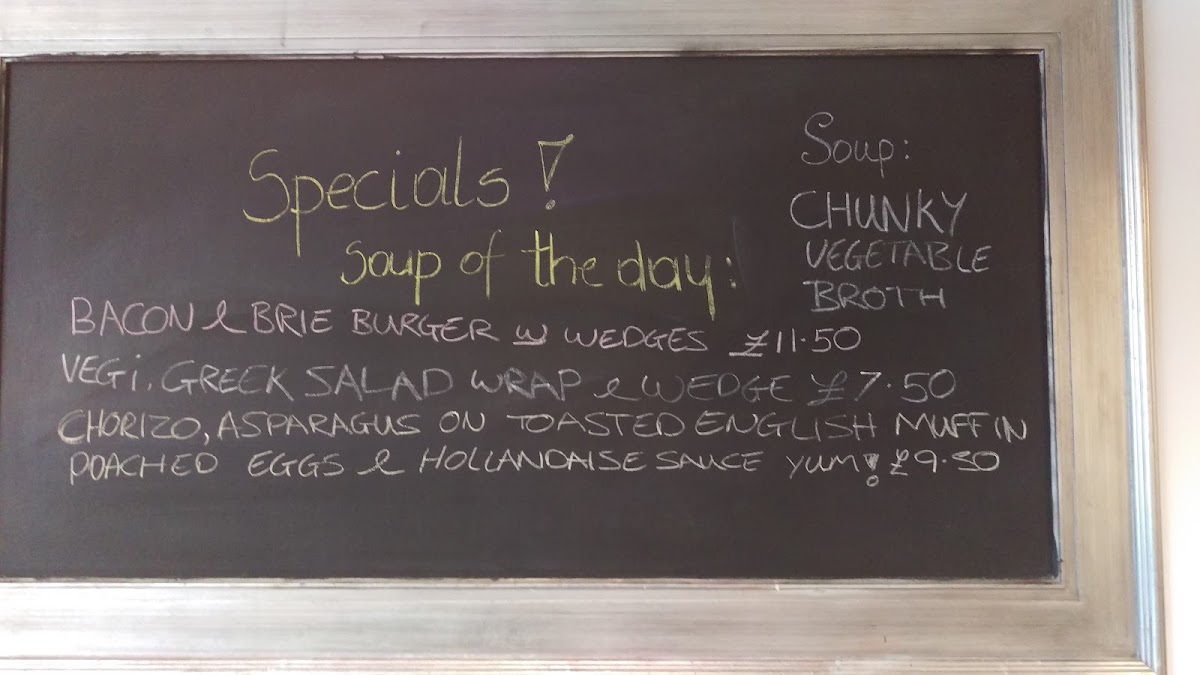 Specials!
soup of the day:
Soup:
CHUNKY
VEGETABLE
BROTH
BACON & BRIE BURGER W WEDGES £11.50
VEGi. GREEK SALAD WRAP & WEDGE £7.50
CHORIZO, ASPARAGUS ON TOASTED ENGLISH MUFFIN
POACHED EGGS & HOLLANDAISE SAUCE YUM! £9.50